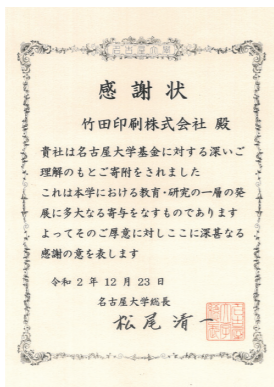 感謝状
竹田印刷株式会社 殿
貴社は名古屋大学基金に対する深いご
理解のもとご寄附をされました
これは本学における教育・研究の一層の発
展に多大なる寄与をなすものであります
よってそのご厚意に対しここに深甚なる
感謝の意を表します
令和2年12月23日
名古屋大学総長
松尾清一